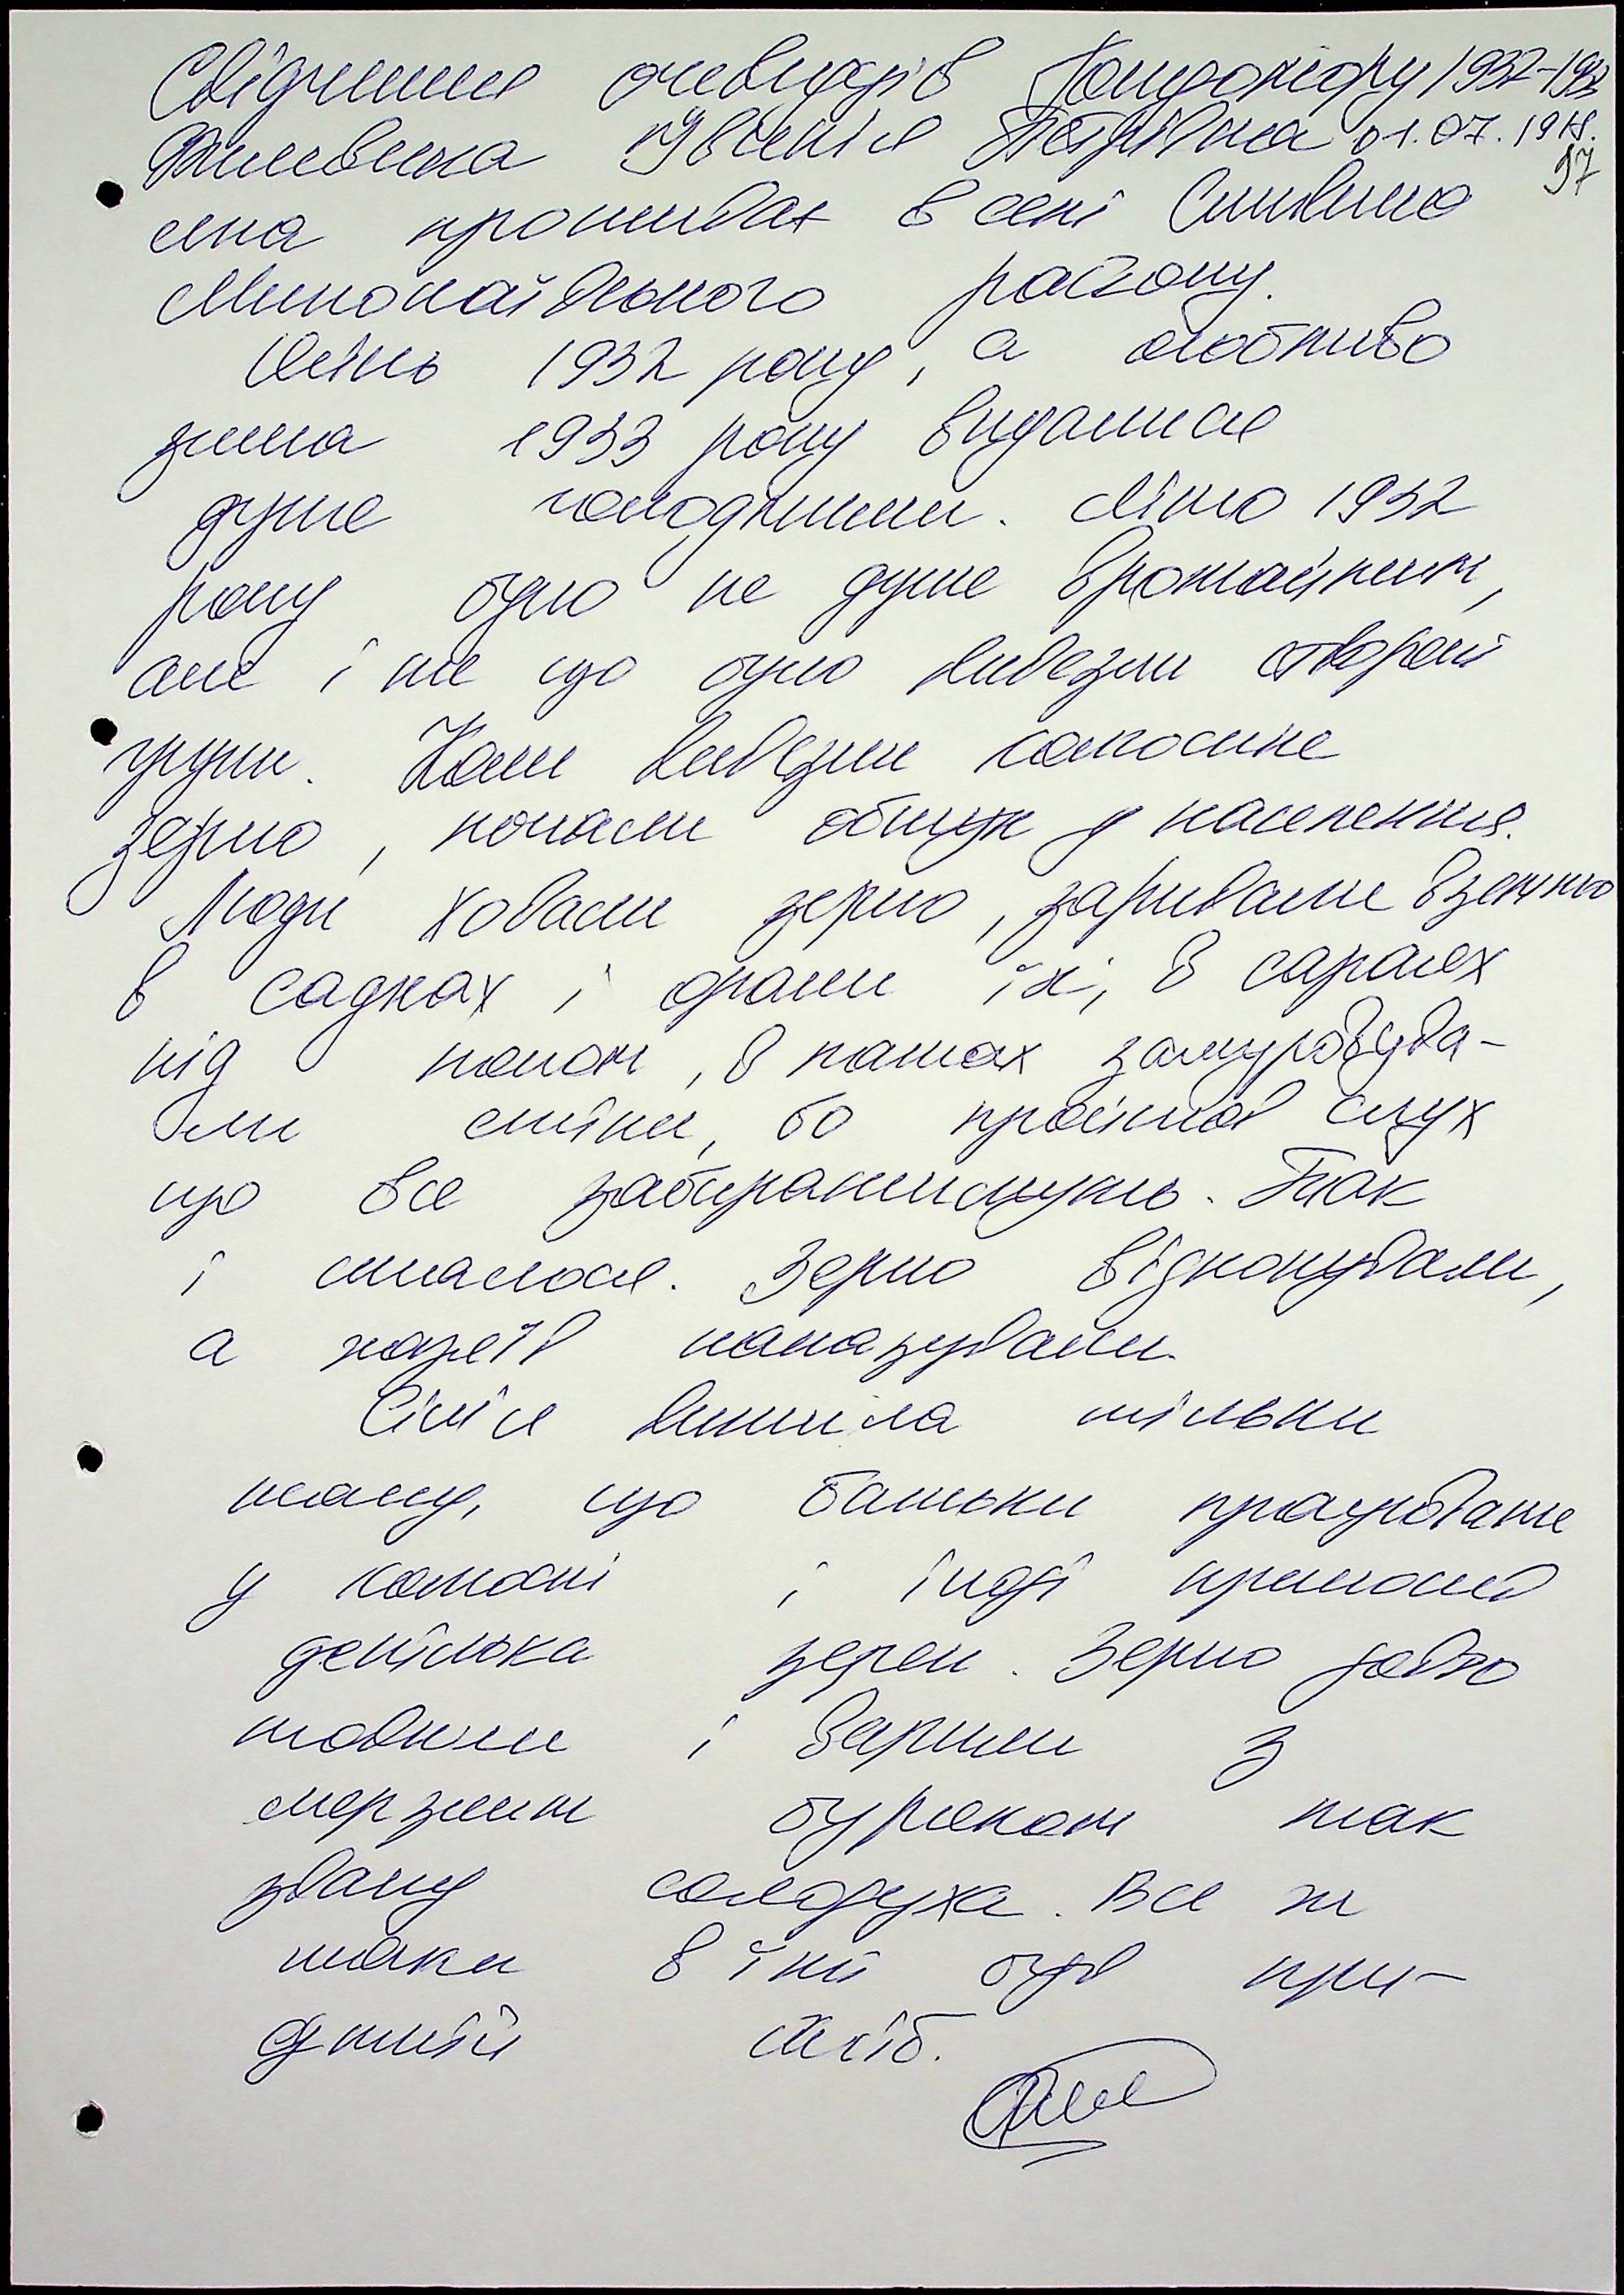 Свідчення очевидців Голодомору 1932-1933
Євгенія Петрівна 01.07.1918.
97
яка проживає в селі
Миколаївського району.
Осінь 1932 року, а особливо
зима 1933 року видалися
дуже голодними. Літо 1932
року було не дуже врожайним,
але і те що було вивезли створені
групи. Коли вивезли колгоспне
зерно, почали обшук у населення.
Люди ховали зерно, заривали в землю
в садках і орали їх, в сараях
під полом, в хатах замуровува-
ли стіни, бо пройшов слух
що все забиратимуть. Так
і сталося. Зерно відкопували,
а хазяїв наказували.
Сім'я вижила тільки
тому, що батьки працювали
у колгоспі і іноді приносив
декілька зерен. Зерно довго
товкли і варили з
мерзлим буряком так
звану солодуха. Все ж
таки в їжі був при-
сутній хліб.